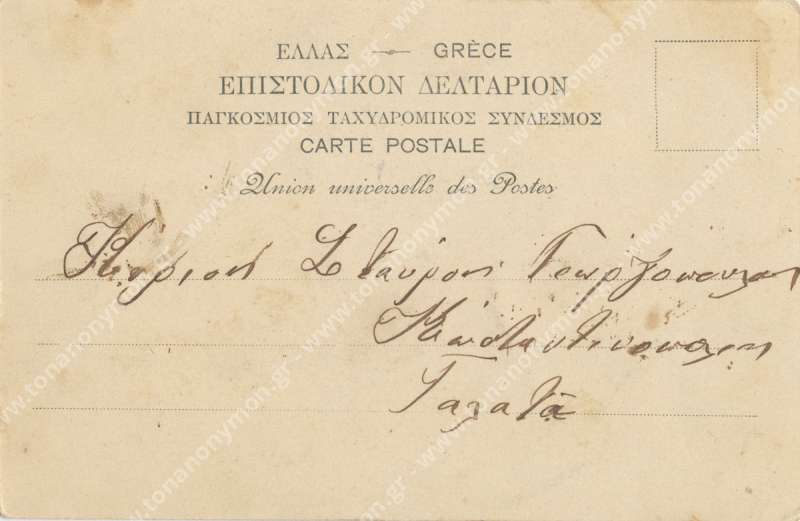 ΕΛΛΑΣ — GRÈCE
ΕΠΙΣΤΟΛΙΚΟΝ ΔΕΛΤΑΡΙΟΝ
ΠΑΓΚΟΣΜΙΟΣ ΤΑΧΥΔΡΟΜΙΚΟΣ ΣΥΝΔΕΣΜΟΣ
CARTE POSTALE
Union universelle des Postes
Κύριον Σταύρον Γεωργόπουλον
Κωνσταντινούπολιν
Γαλατᾶ
www.tonanonymon.gr